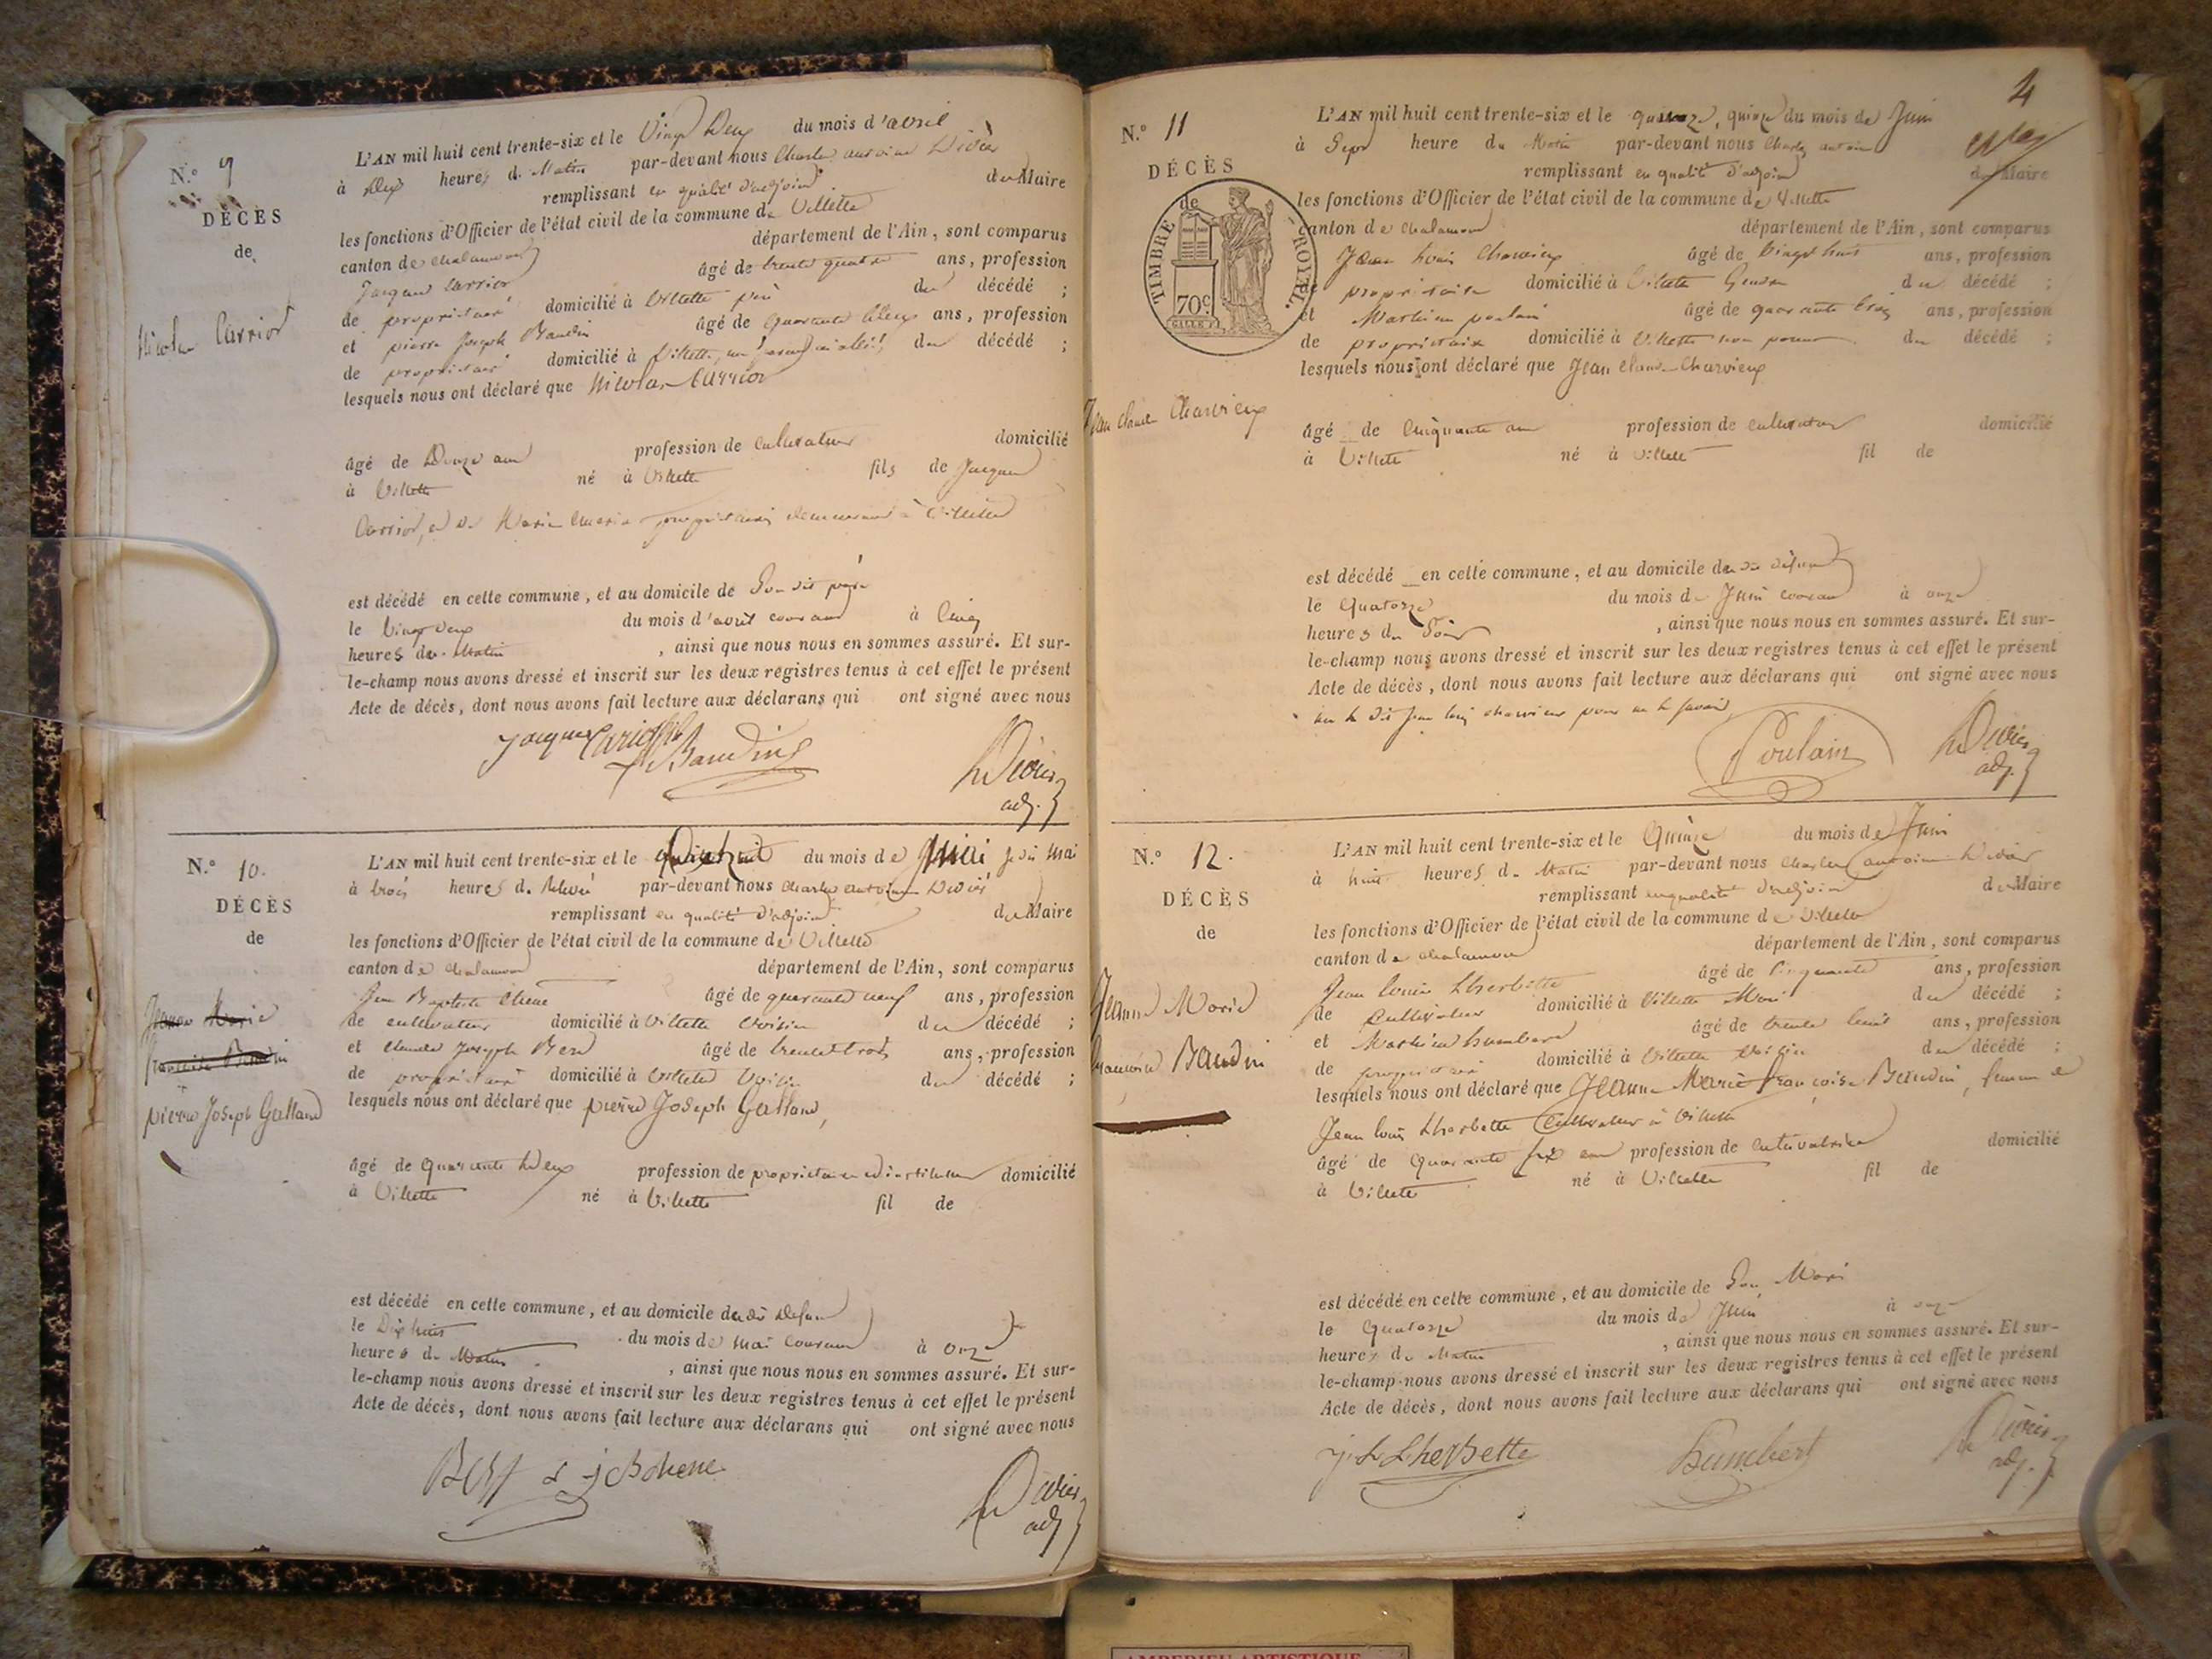 N.° 9
DÉCÈS
de
Nicolas Carriod
L'AN mil huit cent trente-six et le Vingt Deux du mois d'avril
à Deux heures d. Matin par-devant nous Charles antoine Didier
remplissant en qualité d'adjoint du Maire
les fonctions d'Officier de l'état civil de la commune de Villette
canton de chalamont département de l'Ain, sont comparus
Jacques Carriod âgé de trente quatre ans, profession
de propriétaire domicilié à Villette père du décédé ;
et pierre Joseph Baudin âgé de quarante deux ans, profession
de propriétaire domicilié à Villette du décédé ;
lesquels nous ont déclaré que Nicolas Carriod
âgé de Douze ans profession de cultivateur domicilié
à Villette né à Villette fils de Jacques
Carriod, et de Marie propriétaires demeurant à Villette
est décédé en cette commune, et au domicile de Son dit père
le Vingt deux du mois d'avril courant à Cinq
heures du Matin , ainsi que nous nous en sommes assuré. Et sur-
le-champ nous avons dressé et inscrit sur les deux registres tenus à cet effet le présent
Acte de décès, dont nous avons fait lecture aux déclarans qui ont signé avec nous
Jacques Baudin Didier
adj.
N.° 10.
DÉCÈS
de
Jeanne Marie
françoise Baudin
pierre Joseph Galland
L'AN mil huit cent trente-six et le Dixhuit du mois de Mai je dis mai
à trois heures d. par-devant nous Charles antoine Didier
remplissant en qualité d'adjoint du Maire
les fonctions d'Officier de l'état civil de la commune de Villette
canton de chalamont département de l'Ain, sont comparus
Jean Baptiste Chene âgé de quarante neuf ans, profession
de cultivateur domicilié à Villette Voisin du décédé ;
et claude Joseph Berd âgé de trente trois ans, profession
de propriétaire domicilié à Villette Voisin du décédé ;
lesquels nous ont déclaré que pierre Joseph Galland,
âgé de quarante deux profession de propriétaire et instituteur domicilié
à Villette né à Villette fil de
est décédé en cette commune, et au domicile du dit Defunt
le Dix huit du mois de mai courant à onze
heures d. Matin , ainsi que nous nous en sommes assuré. Et sur-
le-champ nous avons dressé et inscrit sur les deux registres tenus à cet effet le présent
Acte de décès, dont nous avons fait lecture aux déclarans qui ont signé avec nous
j B chene Didier
adj
4
N.° 11
DÉCÈS
de
TIMBRE ROYAL.
70c.
Jean Claude Charvieux
L'AN mil huit cent trente-six et le quinze du mois de Juin
à Sept heure du Matin par-devant nous Charles antoine
remplissant en qualité d'adjoint du Maire
les fonctions d'Officier de l'état civil de la commune de Villette
canton de chalamont département de l'Ain, sont comparus
Jean Louis Charvieux âgé de Vingt huit ans, profession
propriétaire domicilié à Villette Gendre du décédé ;
et Mathieu poulain âgé de quarante trois ans, profession
de propriétaire domicilié à Villette non parent du décédé ;
lesquels nous ont déclaré que Jean Claude Charvieux
âgé de Cinquante ans profession de cultivateur domicilié
à Villette né à Villette fil de
est décédé en cette commune, et au domicile du dit défunt
le Quatorze du mois de Juin courant à onze
heures du Soir , ainsi que nous nous en sommes assuré. Et sur-
le-champ nous avons dressé et inscrit sur les deux registres tenus à cet effet le présent
Acte de décès, dont nous avons fait lecture aux déclarans qui ont signé avec nous
Jean Louis charvieux pour ne le savoir
Poulain Didier
adj.
N.° 12.
DÉCÈS
de
Jeanne Marie
françoise Baudin
L'AN mil huit cent trente-six et le Quinze du mois de Juin
à huit heures d. Matin par-devant nous Charles antoine Didier
remplissant en qualité d'adjoint du Maire
les fonctions d'Officier de l'état civil de la commune de Villette
canton de chalamont département de l'Ain, sont comparus
Jean Louis Lherbette âgé de Cinquante ans, profession
de Cultivateur domicilié à Villette Mari du décédé ;
et Mathieu humbert âgé de trente huit ans, profession
de propriétaire domicilié à Villette Voisin du décédé ;
lesquels nous ont déclaré que Jeanne Marie françoise Baudin, femme de
Jean Louis Lherbette Cultivateur à Villette
âgé de Quarante six ans profession de cultivatrice domicilié
à Villette né à Villette fil de
est décédé en cette commune, et au domicile de Son Mari
le Quatorze du mois de Juin à onze
heures de Matin , ainsi que nous nous en sommes assuré. Et sur-
le-champ nous avons dressé et inscrit sur les deux registres tenus à cet effet le présent
Acte de décès, dont nous avons fait lecture aux déclarans qui ont signé avec nous
j. L Lherbette humbert Didier
adj.
AMBERIEU ARTISTIQUE